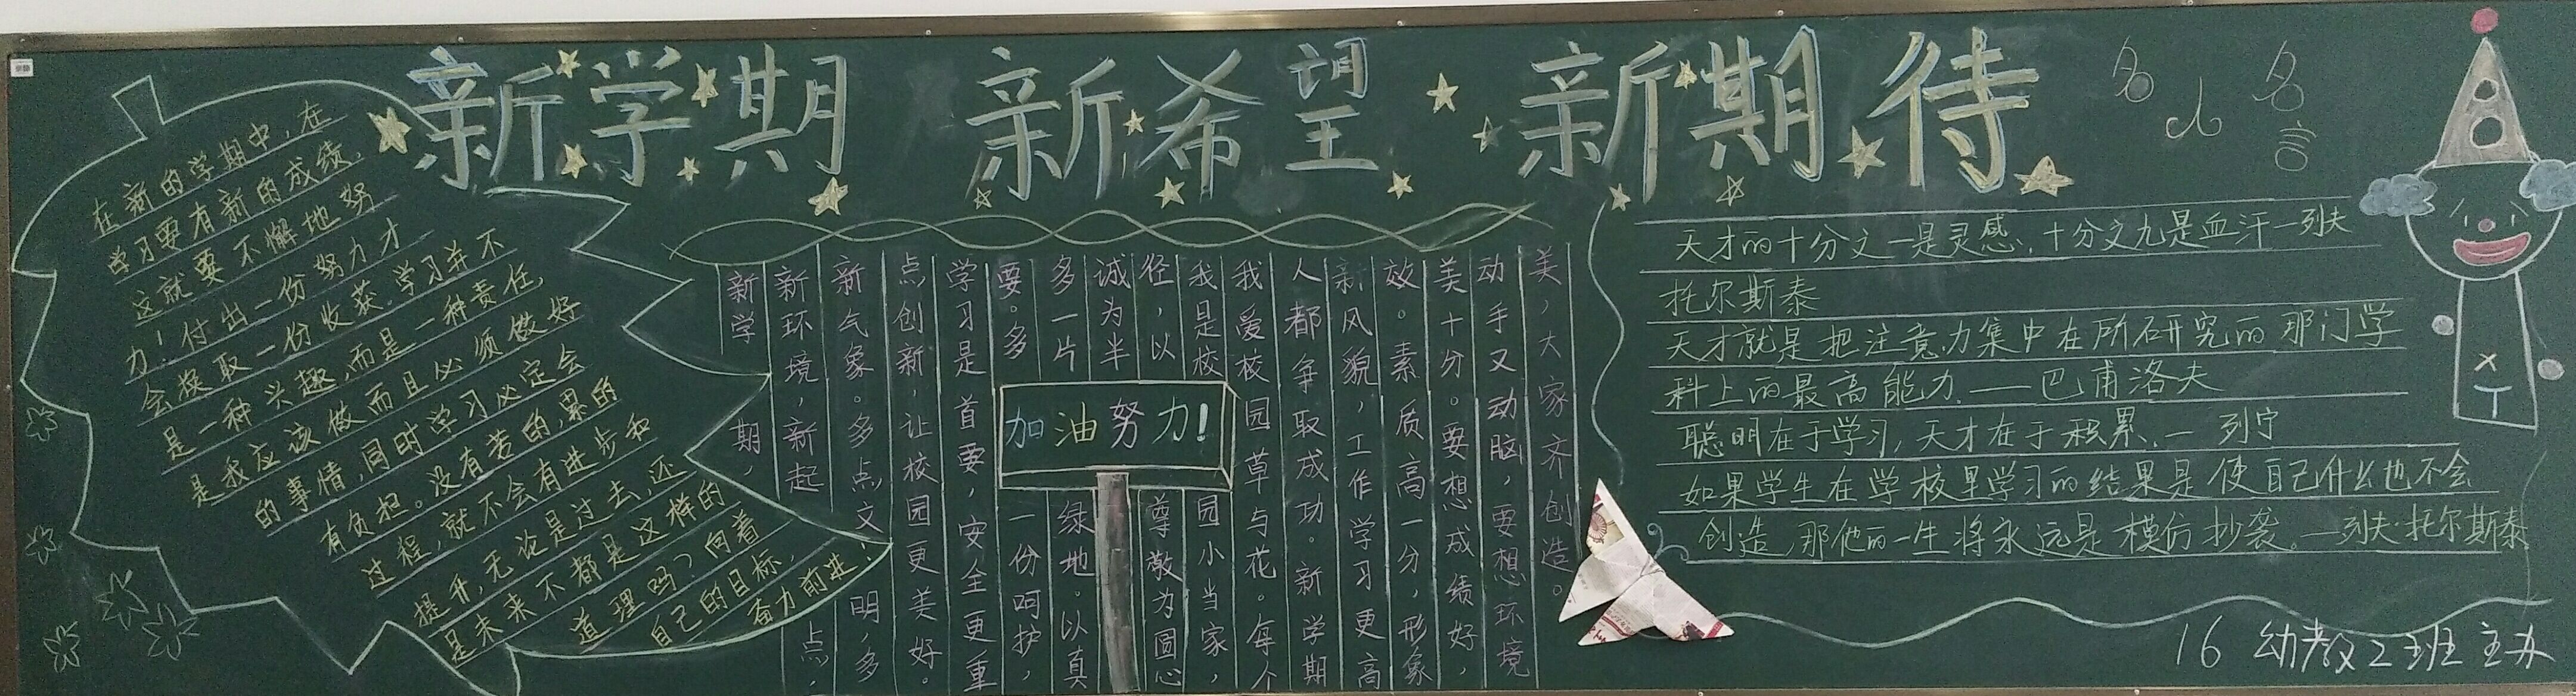 新学期 新希望 新期待
在新的学期中，在
学习要有新的成绩，
这就要不懈地努
力！付出一份努力才
会换取一份收获，学习并不
是一种兴趣，而是一种责任，
是我应该做而且必须做好
的事情，同时学习必定会
有负担。没有苦的，累的
过程，就不会有进步和
提升，无论是过去，还
是未来不都是这样的
道理吗？向着
自己的目标，
奋力前进！
新学期，
新环境，新起点，
新气象。多点文明，多
点创新，让校园更美好。
学习是首要，安全更重
要。多一份呵护，
多一片绿地。以真
诚为半
径，以尊敬为圆心
我是校园小当家，
我爱校园草与花。每个
人都争取成功。新学期
新风貌，工作学习更高
效。素质高一分，形象
美十分。要想成绩好，
动手又动脑，要想环境
美，大家齐创造。
加油努力！
名人名言
天才的十分之一是灵感，十分之九是血汗—列夫
托尔斯泰
天才就是把注意力集中在所研究的那门学
科上的最高能力——巴甫洛夫
聪明在于学习，天才在于积累.—列宁
如果学生在学校里学习的结果是使自己什么也不会
创造，那他的一生将永远是模仿抄袭。—列夫·托尔斯泰
16 幼教2班 主办